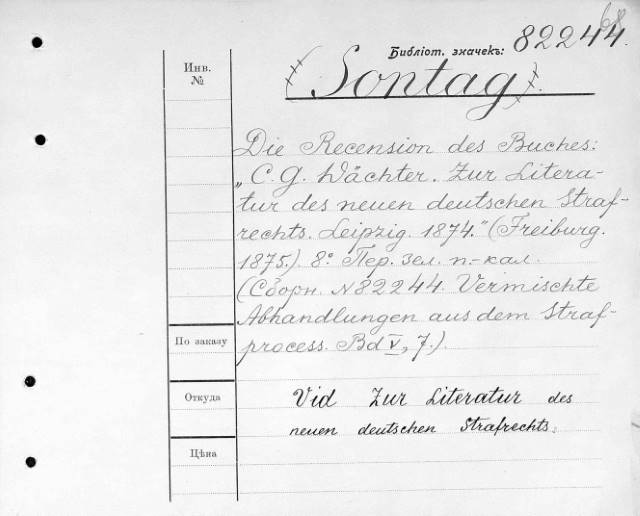 68
Библіот. значекъ: 82244.
(Sontag).
Инв.
№
Die Recension des Buches:
„C. G. Wächter. Zur Litera-
tur des neuen deutschen Straf-
rechts. Leipzig. 1874." (Freiburg.
1875.). 8° Пер. зел. п.-кал.
(Сборн. №82244. Vermischte
Abhandlungen aus dem Straf-
process. Bd V, 7.).
По заказу
Откуда
Vid Zur Literatur des
neuen deutschen Strafrechts.
Цѣна